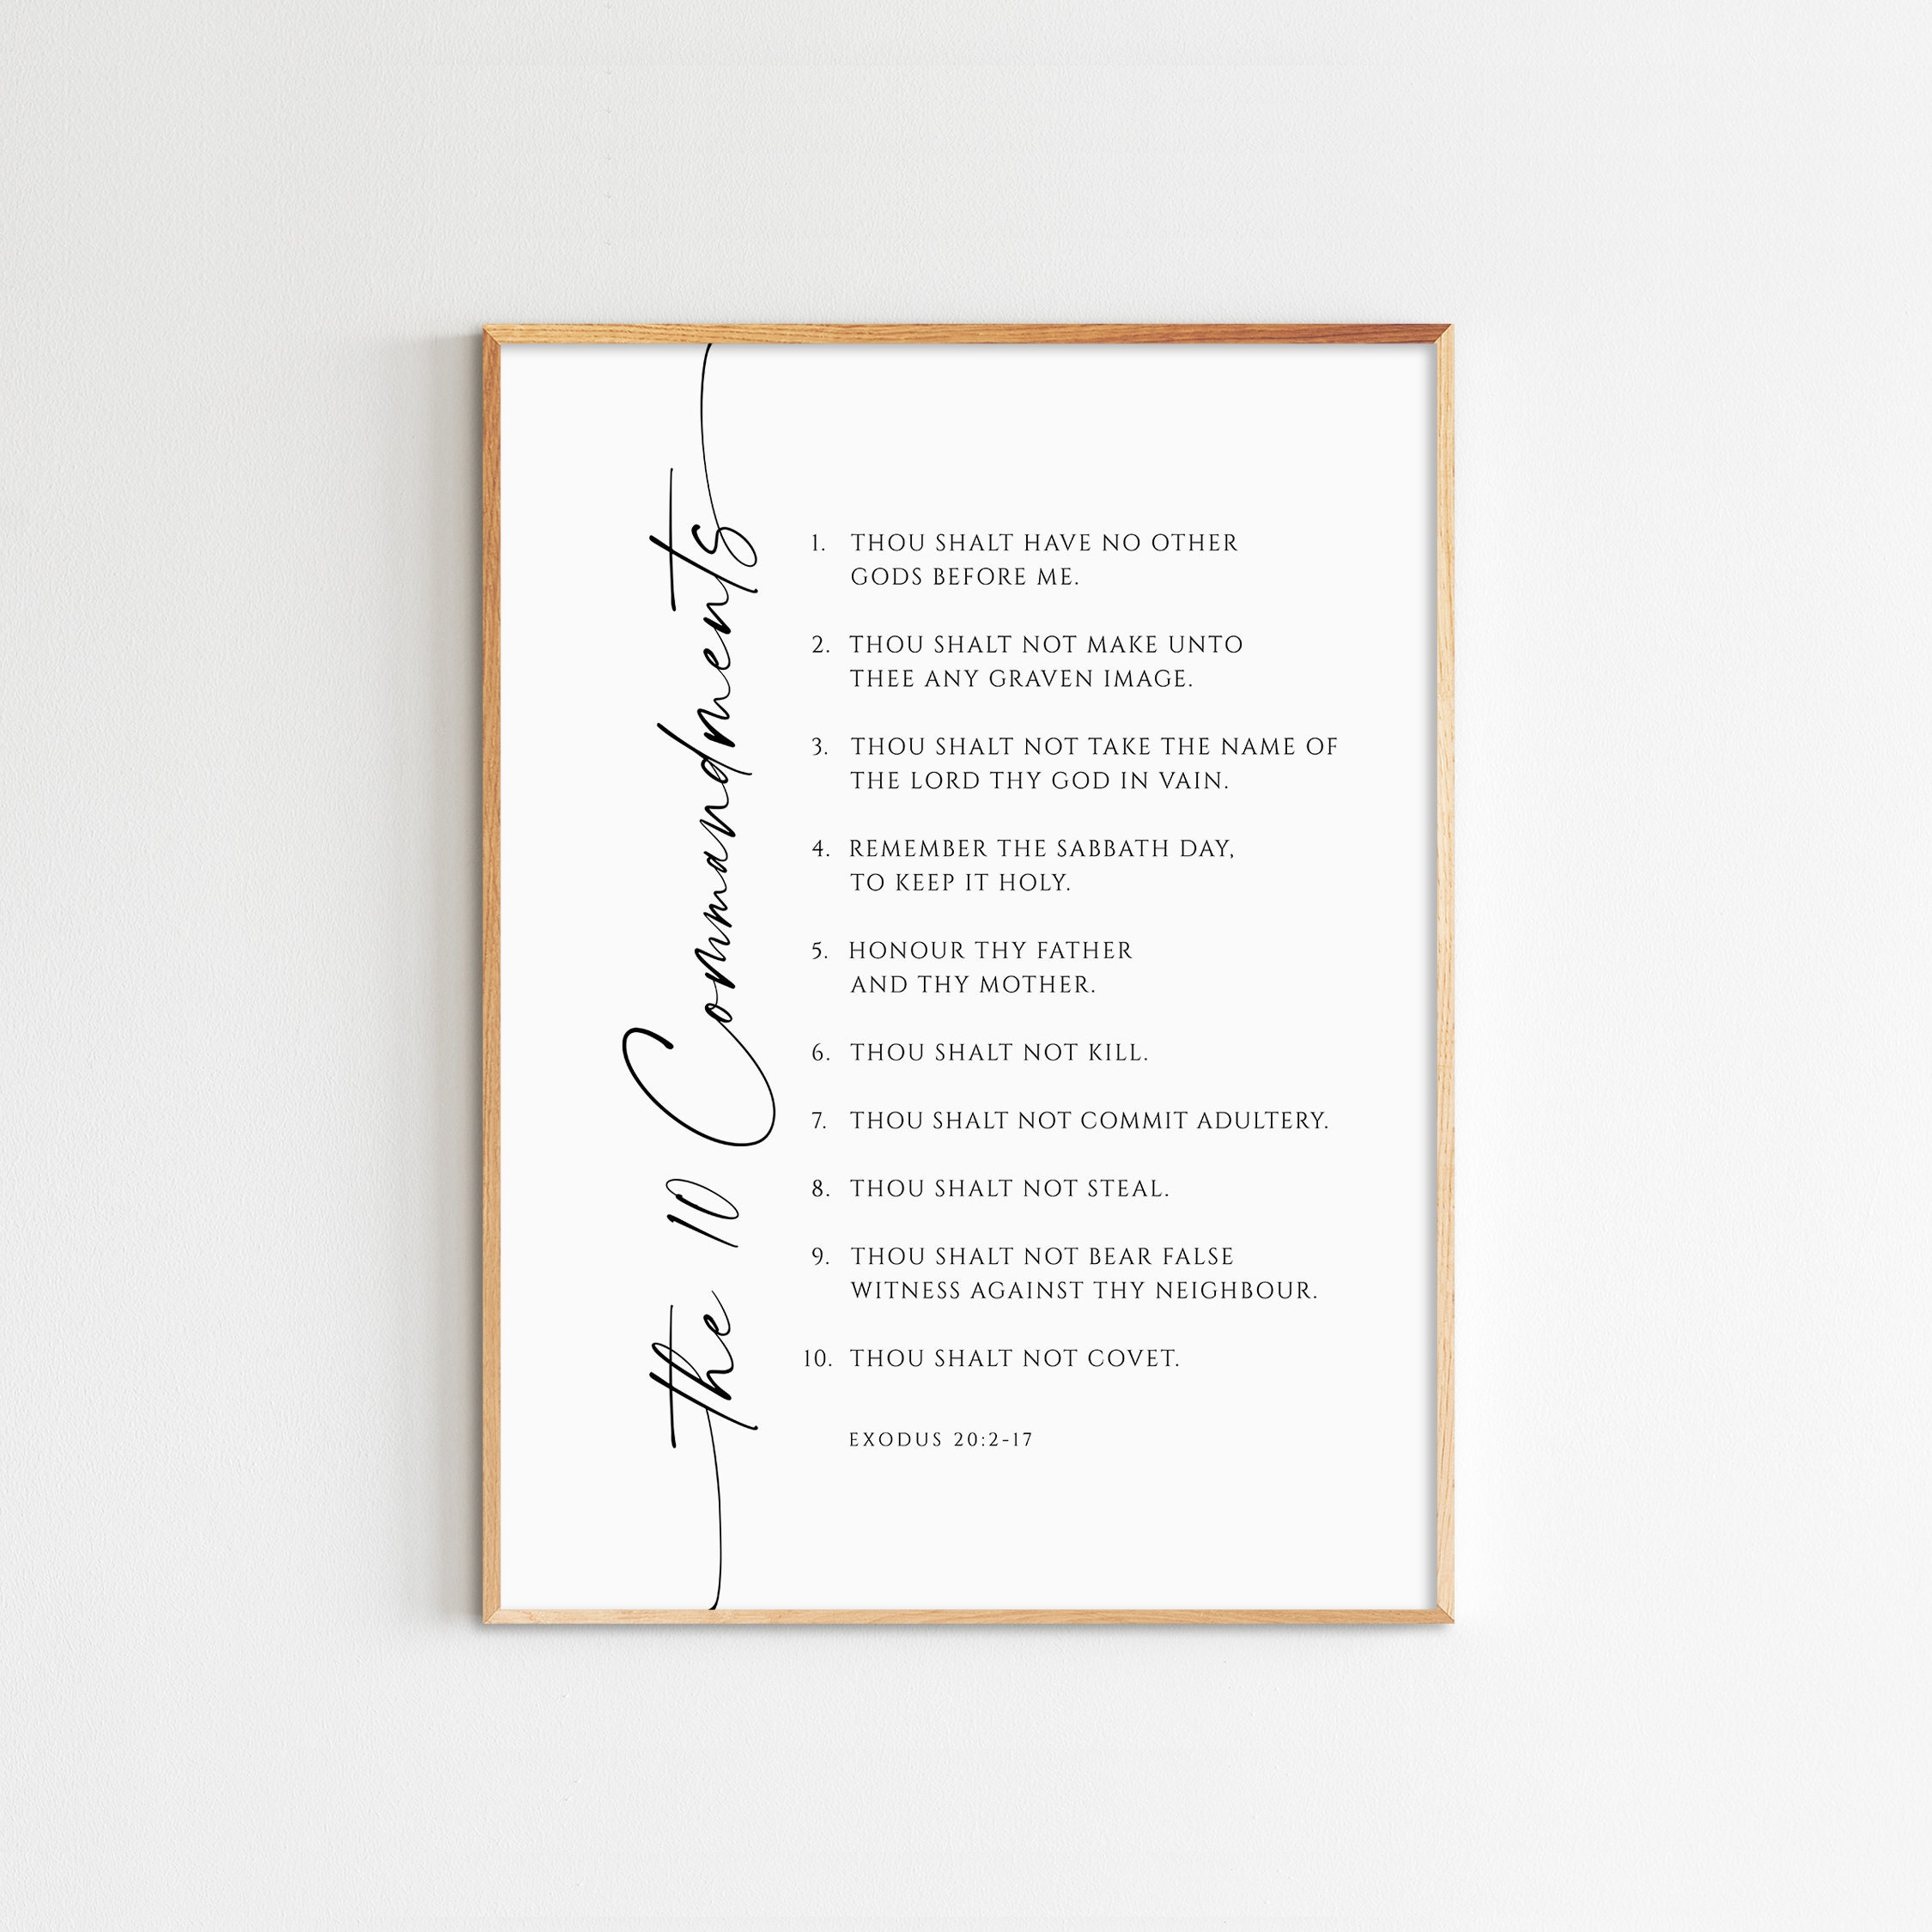 the 10 Commandments
1. THOU SHALT HAVE NO OTHER
GODS BEFORE ME.
2. THOU SHALT NOT MAKE UNTO
THEE ANY GRAVEN IMAGE.
3. THOU SHALT NOT TAKE THE NAME OF
THE LORD THY GOD IN VAIN.
4. REMEMBER THE SABBATH DAY,
TO KEEP IT HOLY.
5. HONOUR THY FATHER
AND THY MOTHER.
6. THOU SHALT NOT KILL.
7. THOU SHALT NOT COMMIT ADULTERY.
8. THOU SHALT NOT STEAL.
9. THOU SHALT NOT BEAR FALSE
WITNESS AGAINST THY NEIGHBOUR.
10. THOU SHALT NOT COVET.
EXODUS 20:2-17